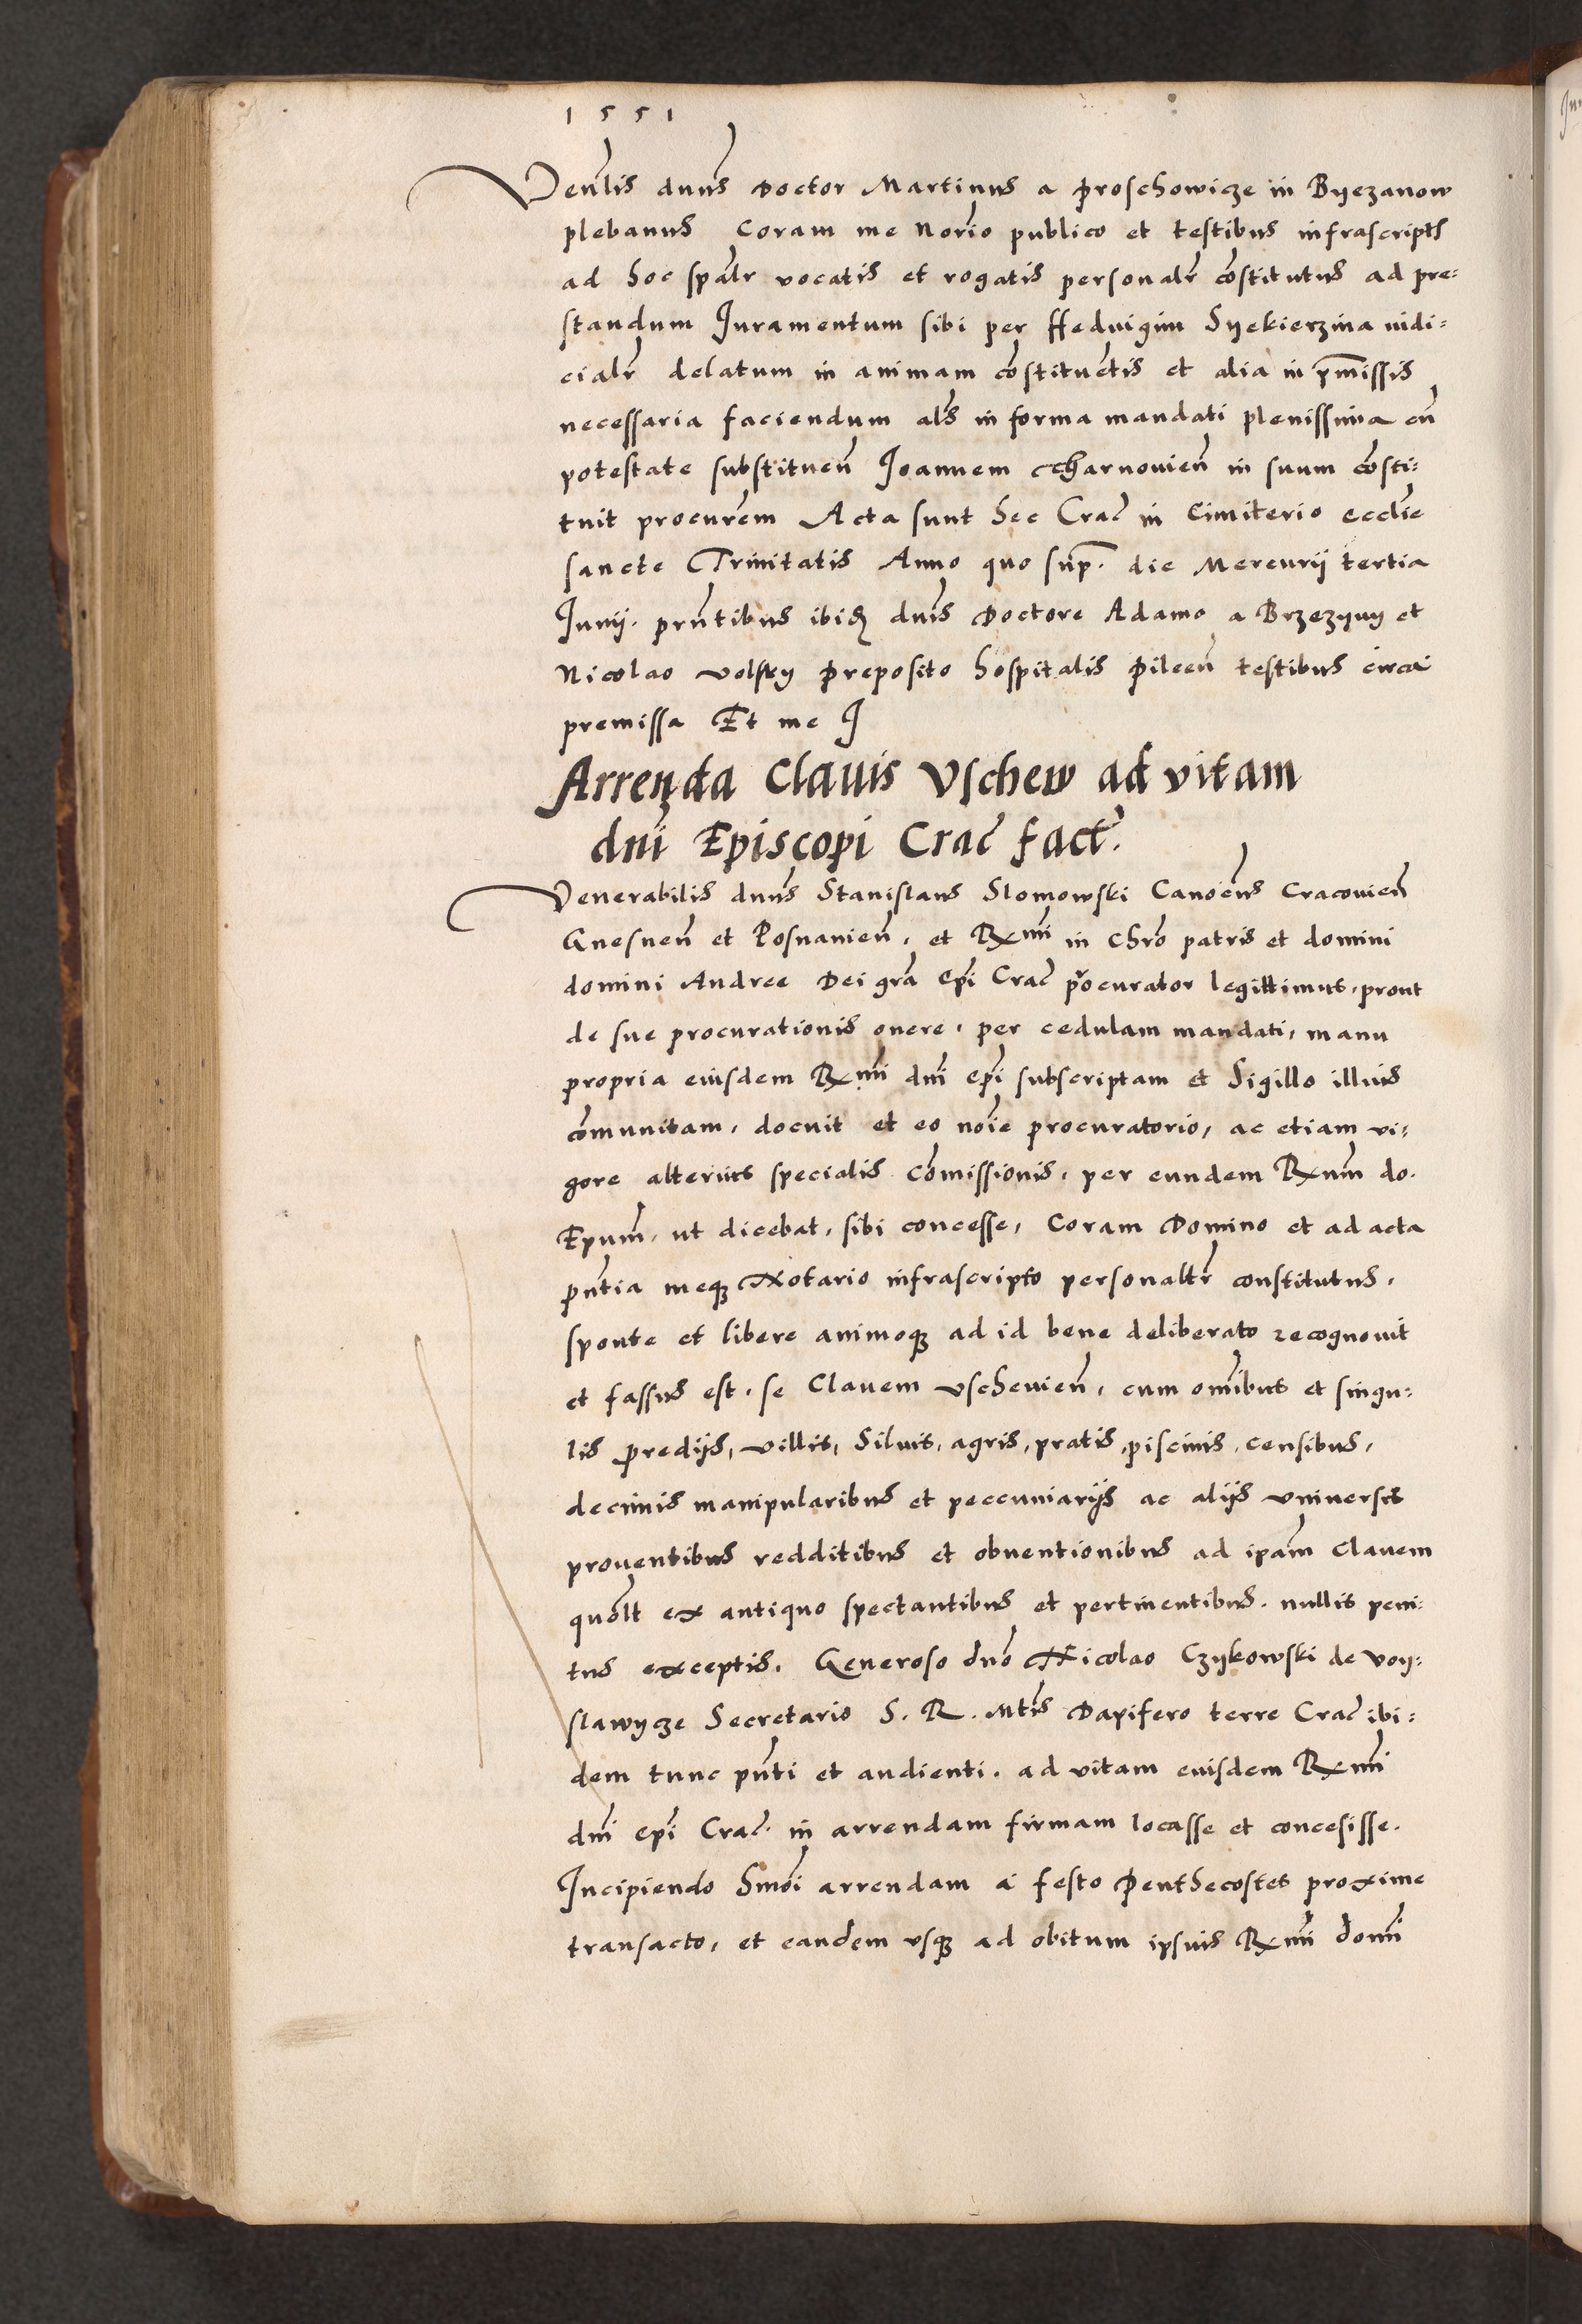 1551
Venlis dnus Doctor Martinus a Proschowicze in Byezanow
plebanus Coram me Norio publico et testibus infrascriptis
ad hoc spalr vocatis et rogatis personalr constitutus ad pre=
standum Juramentum sibi per Hedvigim Syekierzina iudi=
cialr delatum in animam constituentis et alia in pmissis
necessaria faciendum als in forma mandati plenissima cu
potestate substituen Joannem Charnovien in suum consti=
tuit procurem Acta sunt hec Crac in Cimiterio ecclie
sancte Trinitatis Anno quo sup. die Mercurij tertia
Junij. pntibus ibidem dnis Doctore Adamo a Brzezyny et
Nicolao Volsky Preposito hospitalis Pilcen testibus circa
premissa Et me J
Arrenda Clauis Vschew ad vitam
dni Episcopi Crac fact.
Venerabilis dnus Stanislaus Slomowski Canoicus Cracovien
Gnesnen et Posnanien, et Rxmi in Chro patris et domini
domini Andree Dei gra Epi Crac procurator legittimus, prout
de sue procurationis onere, per cedulam mandati, manu
propria eiusdem Rxmi dni epi subscriptam et Sigillo illius
comunitam, docuit et eo noie procuratorio, ac etiam vi=
gore alterius specialis comissionis, per eundem Rxum do.
Epum, ut dicebat, sibi concesse, Coram Domino et ad acta
pntia meq Notario infrascripto personaltr constitutus,
sponte et libere animoq ad id bene deliberato recognouit
et fassus est, se Clauem vscheuien, cum omibus et singu=
lis predijs, villis, Siluis, agris, pratis, piscinis, censibus,
decimis manipularibus et peccuniarijs ac alijs vniversis
prouentibus redditibus et obuentionibus ad ipam Clauem
quolt ex antiquo spectantibus et pertinentibus, nullis peni=
tus exceptis, Generoso dno Nicolao Czykowski de voy=
slawycze Secretario S. R. Mtis Dapifero terre Crac ibi=
dem tunc pnti et audienti, ad vitam eiusdem Rxmi
dni epi Crac. in arrendam firmam locasse et concesisse.
Incipiendo hmoi arrendam a festo Penthecostes proxime
transacto, et eandem vsq ad obitum ipsius Rxmi domi